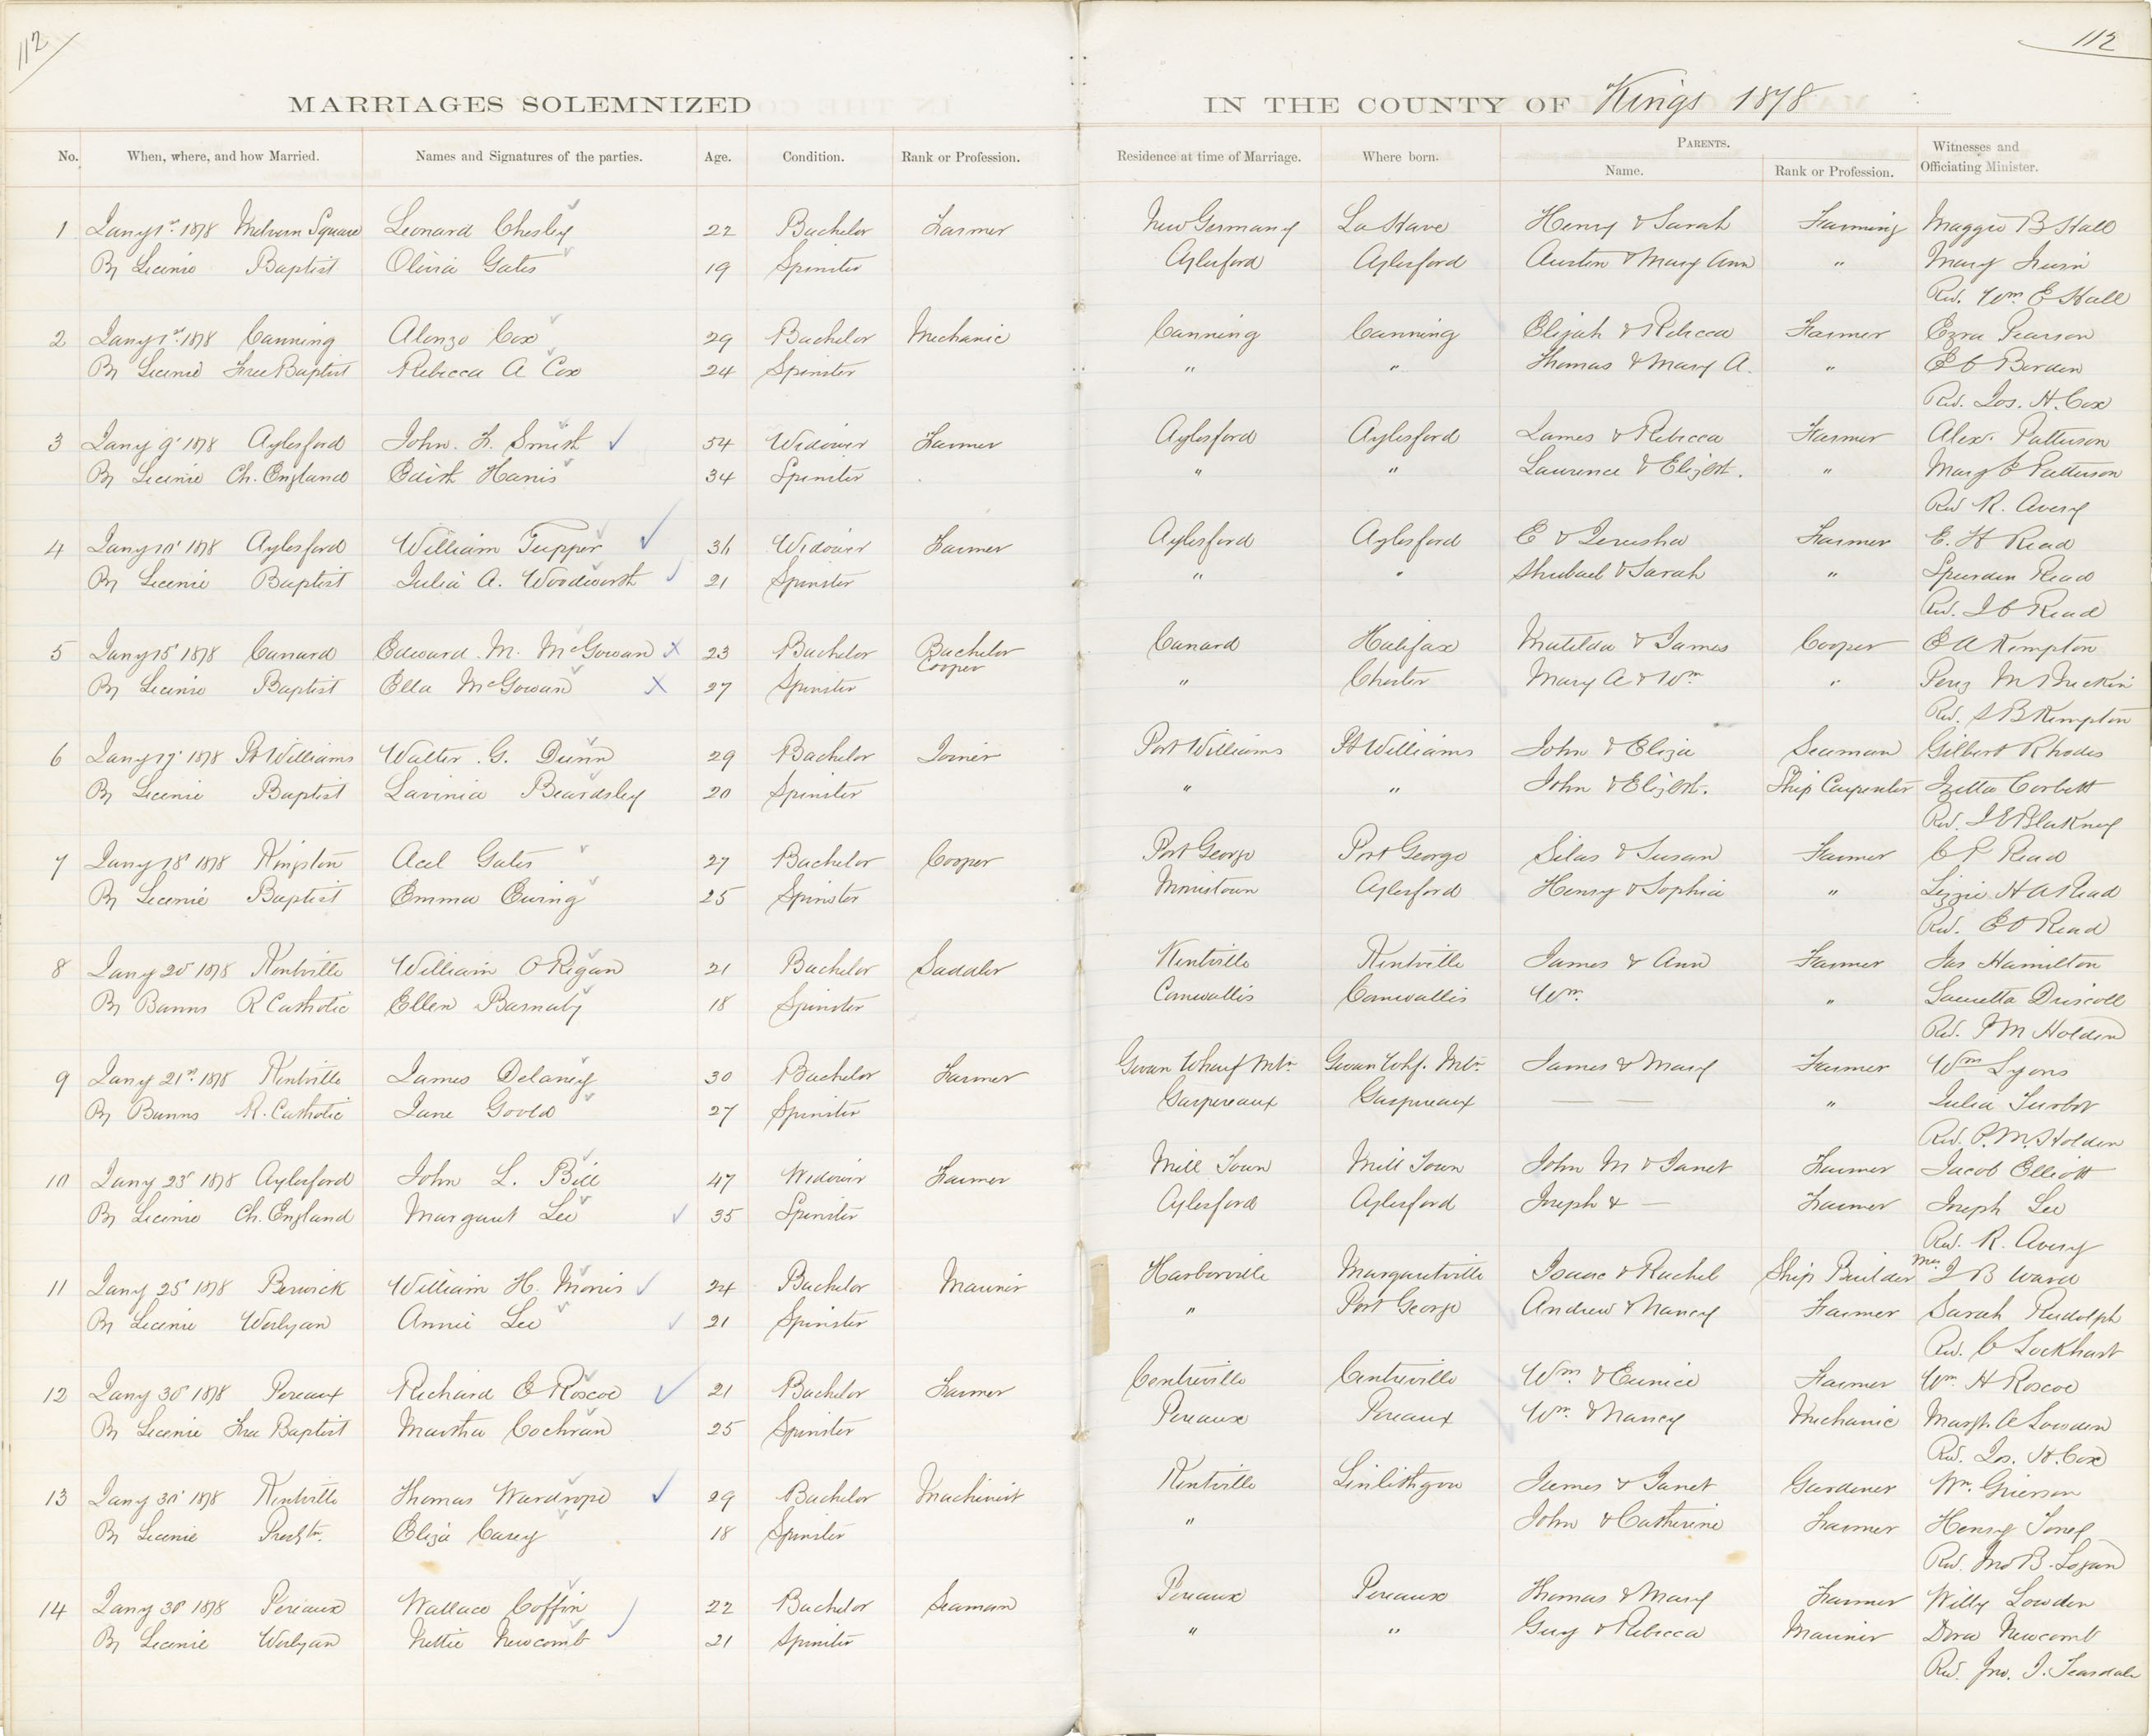 112
112
MARRIAGES SOLEMNIZED IN THE COUNTY OF Kings 1878
No. When, where, and how Married. Names and Signatures of the parties. Age. Condition. Rank or Profession. Residence at time of Marriage. Where born. PARENTS. Name. Rank or Profession. Witnesses and Officiating Minister.
1 Jany 1st 1878 Melvern Square Leonard Chesley 22 Bachelor Farmer New Germany La Have Henry & Sarah Farming Maggie B Hall
By License Baptist Olivia Gates 19 Spinster Aylesford Aylesford Austen & Mary Ann " Mary Irwin
Rev. Wm E Hall
2 Jany 1st 1878 Canning Alonzo Cox 29 Bachelor Mechanic Canning Canning Elijah & Rebecca Farmer Ezra Pearson
By License Free Baptist Rebecca A Cox 24 Spinster " " Thomas & Mary A. " E C Borden
Rev. Jos. H. Cox
3 Jany 9 1878 Aylesford John. F. Smith 54 Widower Farmer Aylesford Aylesford James & Rebecca Farmer Alex. Patterson
By License Ch. England Edith Harris 34 Spinster " " Lawrence & Elizbth. " Mary E Patterson
Rev R. Avery
4 Jany 10 1878 Aylesford William Tupper 36 Widower Farmer Aylesford Aylesford E & Jerusha Farmer E. H Read
By License Baptist Julia A. Woodworth 21 Spinster " " Shubael & Sarah " Spurden Read
Rev. J C Read
5 Jany 15 1878 Canard Edward. M. McGowan x 23 Bachelor Bachelor Cooper Canard Halifax Matilda & James Cooper E A Kempton
By License Baptist Ella McGowan X 27 Spinster " Chester Mary A & Wm "
Rev. S B Kempton
6 Jany 17 1878 Pt Williams Walter. G. Dunn 29 Bachelor Joiner Port Williams Pt Williams John & Eliza Seaman Gilbert Rhodes
By License Baptist Lavinia Beardsley 20 Spinster " " John & Elizbth. Ship Carpenter Izetta Corbett
Rev. I E Blakney
7 Jany 18 1878 Kingston Acel Gates 27 Bachelor Cooper Port George Port George Silas & Susan Farmer Read
By License Baptist Emma Ewing 25 Spinster Morristown Aylesford Henry & Sophia " Lizzie H A Read
Rev. E O Read
8 Jany 20 1878 Kentville William O Regan 21 Bachelor Saddler Kentville Kentville James & Ann Farmer Jas Hamilton
By Banns R Catholic Ellen Barnaby 18 Spinster Cornwallis Cornwallis Wm. " Driscoll
Rev. P M Holden
9 Jany 21st 1878 Kentville James Delaney 30 Bachelor Farmer Gwan Wharf Mtn. Gwan Whf. Mtn. James & Mary Farmer Wm Lyons
By Banns R. Catholic Jane Goold 27 Spinster Gaspereaux Gaspreaux — — " Julia
Rev. P. M. Holden
10 Jany 23 1878 Aylesford John L. Bill 47 Widower Farmer Mill Town Mill Town John M & Janet Farmer Jacob Elliott
By License Ch. England Margaret Lee 35 Spinster Aylesford Aylesford Joseph & — Farmer Joseph Lee
Rev. R. Avery
11 Jany 25 1878 Berwick William H. Morris 24 Bachelor Mariner Harborville Margaretville Isaac & Rachel Ship Builder Mrs J B Ward
By License Weslyan Annie Lee 21 Spinster " Port George Andrew & Nancy Farmer Sarah Rudolph
Rev. C Lockhart
12 Jany 30 1878 Pereaux Richard E Roscoe 21 Bachelor Farmer Centreville Centreville Wm & Eunice Farmer Wm. H Roscoe
By License Free Baptist Martha Cochran 25 Spinster Pereaux Pereaux Wm. & Nancy Mechanic Margt. A Lowden
Rev. Jos. H. Cox
13 Jany 30 1878 Kentville Thomas Wardrope 29 Bachelor Machinist Kentville Linlithgow James & Janet Gardener Wm. Grierson
By License Presbtn. Eliza Carey 18 Spinster " John & Catherine Farmer Henry
Rev. Jno B. Logan
14 Jany 30 1878 Pereaux Wallace Coffin 22 Bachelor Seaman Pereaux Pereaux Thomas & Mary Farmer Willy Lowden
By License Weslyan Nettie Newcomb 21 Spinster " " Guy & Rebecca Mariner Dora Newcomb
Rev. Jno. J. Teasdale